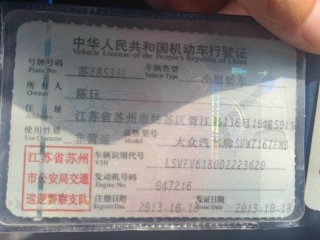 中华人民共和国机动车行驶证
Vehicle License of the People's Republic of China
号牌号码
Plate No.
车辆类型
Vehicle Type
小型轿车
所有人
Owner
陈
住址
Address
江苏省苏州市姑苏区胥江
使用性质
Use Character
非营运
品牌型号
Model
大众汽车牌SVW7167FMD
江苏省苏州
市公安局交通
巡逻警察支队
车辆识别代号
VIN
发动机号码
Engine No.
047216
注册日期
Register Date
2013-10-18
发证日期
Issue Date
2013-10-18